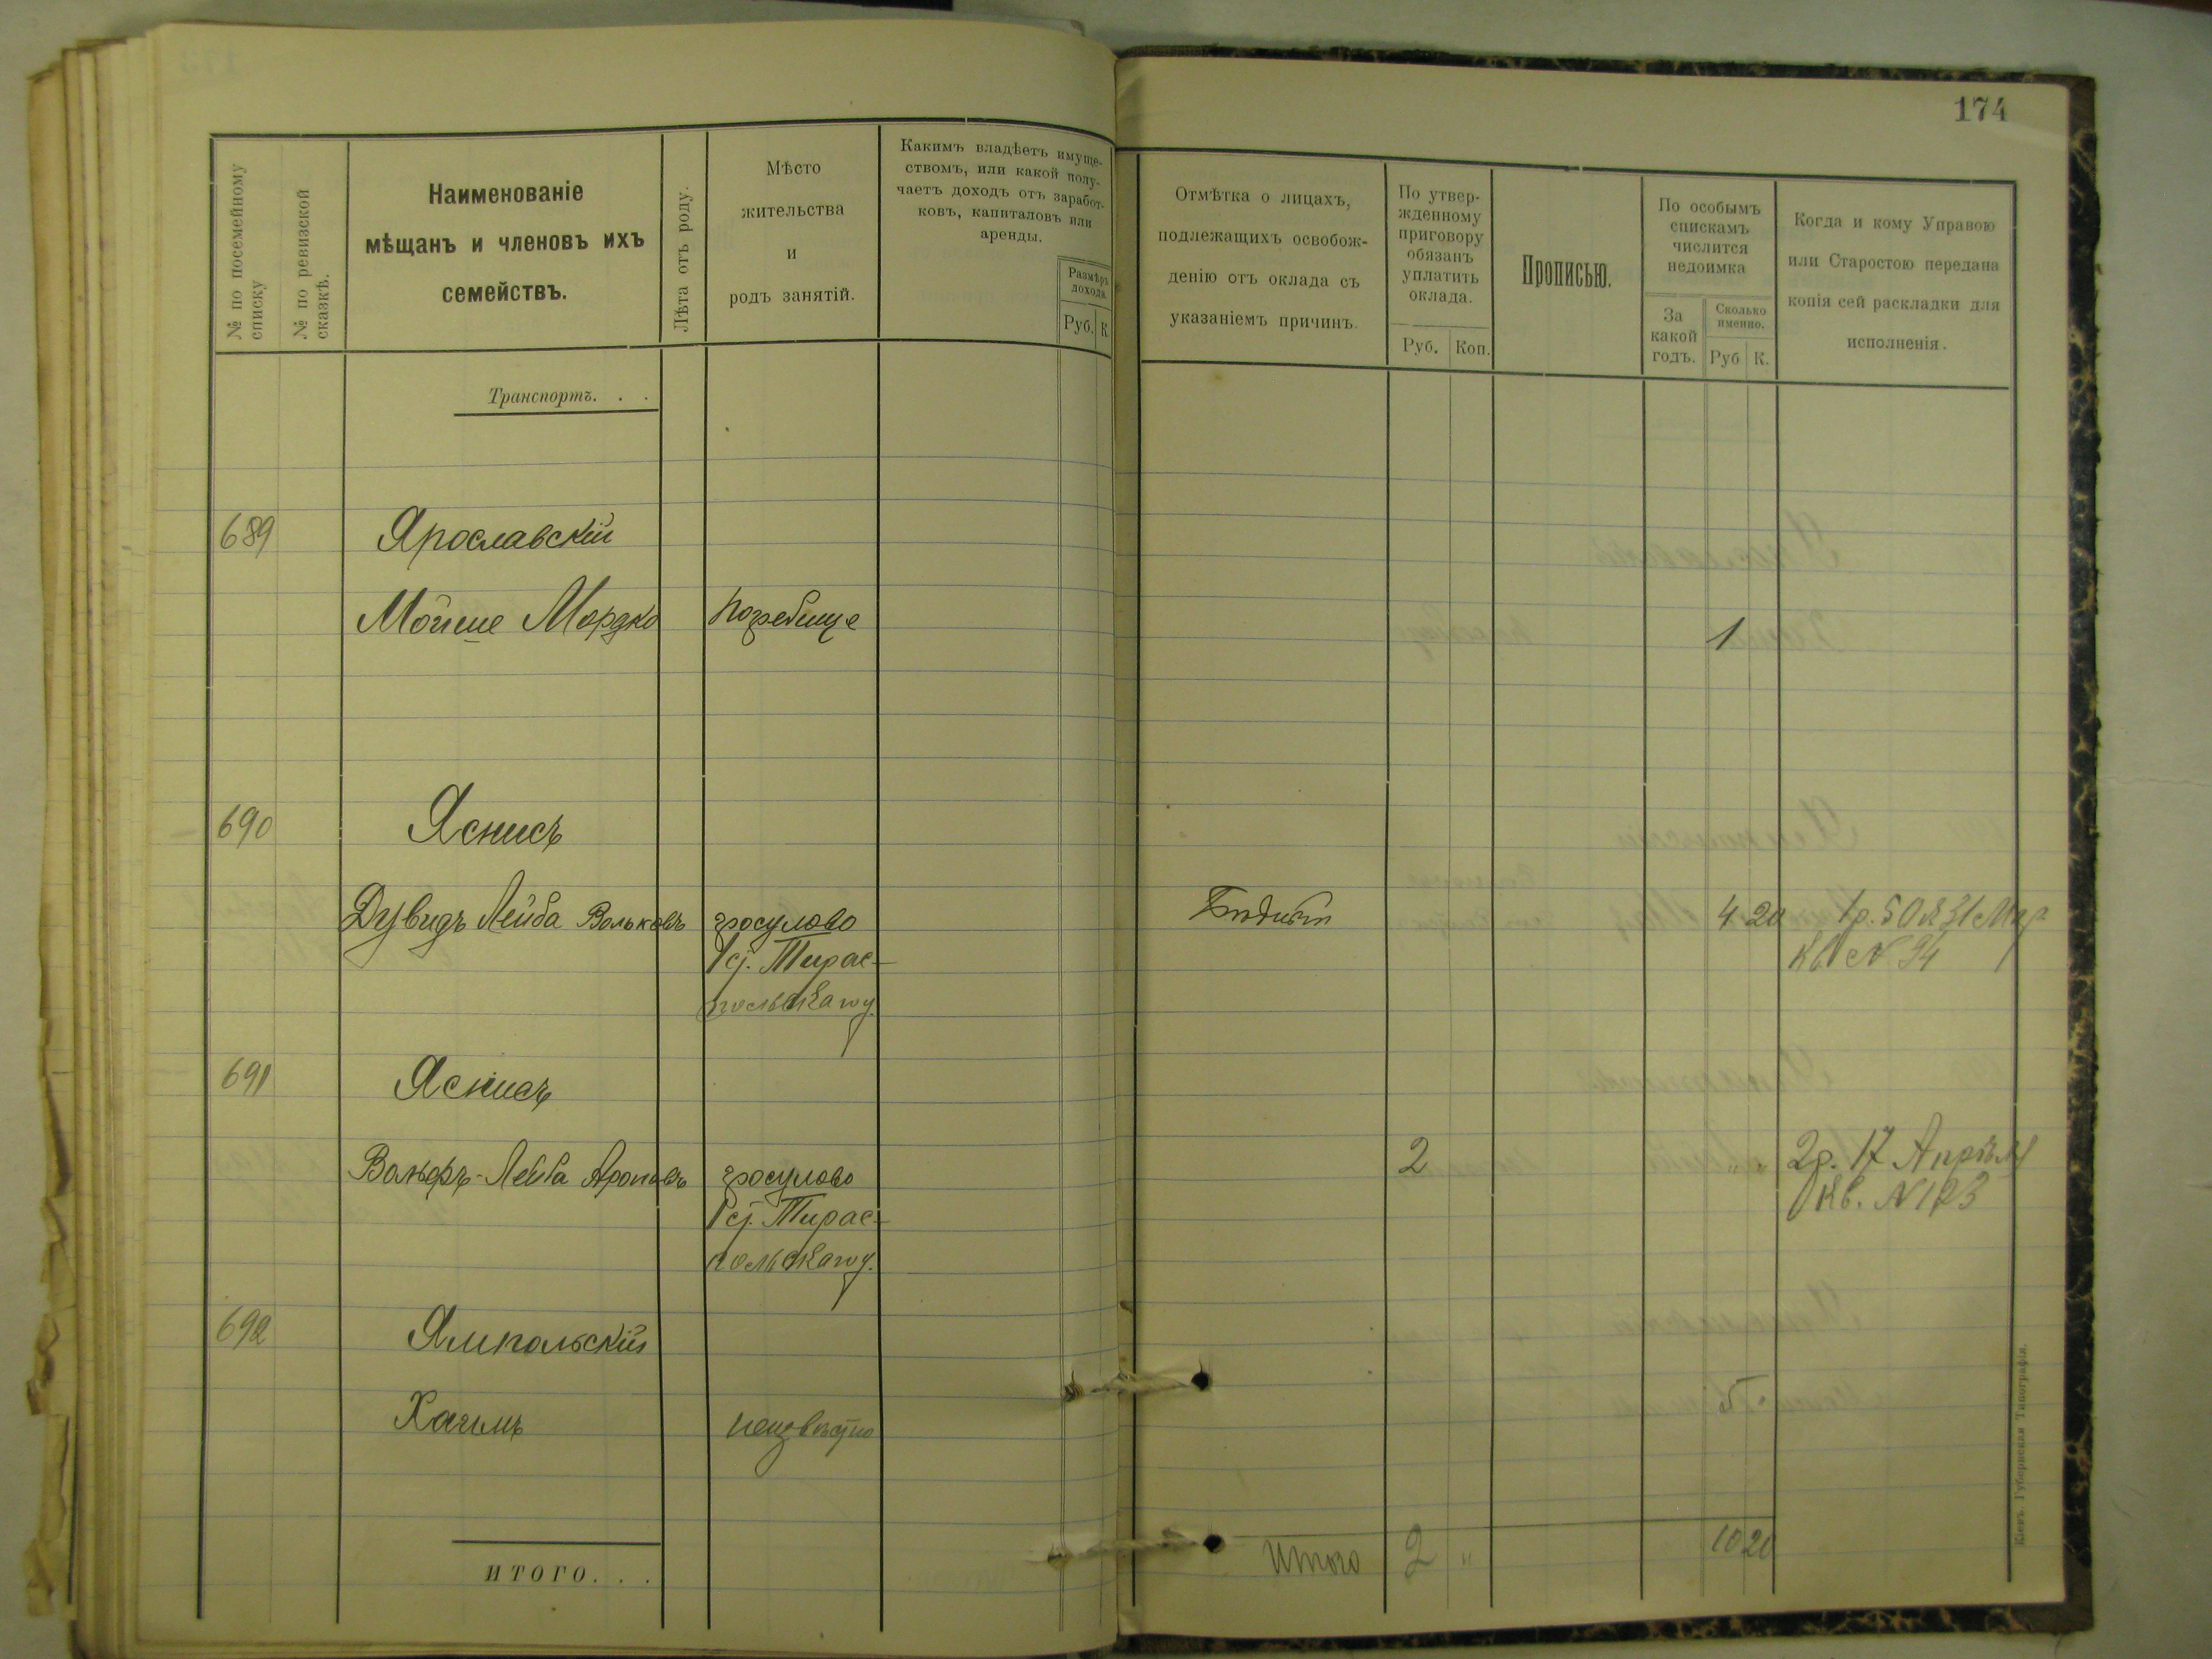 174
№ по посемейному
списку
№ по ревизской
сказкѣ.
Наименованіе
мѣщанъ и членовъ ихъ
семействъ.
Лѣта отъ роду.
Мѣсто
жительства
и
родъ занятій.
Какимъ владѣетъ имуще-
ствомъ, или какой полу-
чаетъ доходъ отъ заработ-
ковъ, капиталовъ или
аренды.
Размѣръ
дохода.
Руб. К.
Отмѣтка о лицахъ,
подлежащихъ освобож-
денію отъ оклада съ
указаніемъ причинъ.
По утвер-
жденному
приговору
обязанъ
уплатить
оклада.
Руб. Коп.
Прописью.
По особымъ
спискамъ
числится
недоимка
За
какой
годъ.
Сколько
именно.
Руб К.
Когда и кому Управою
или Старостою передана
копія сей раскладки для
исполненія.
Транспортъ. . .
689 Ярославскій
Мойше Мордко Погребище 1
690 Яснисъ
Дувидъ Лейба Вольковъ гросулово 4 20 1р. 50 к 31 Мар
Тирас- Кв № 94
польскаго у.
691 Яснисъ
Вольфъ-Лейба Ароновъ гросулово 2 " " 2р. 17 Апрѣля
Тирас- Кв. № 123
польскаго у.
692 Ямпольскій
Хаимъ неизвѣстно 5
ИТОГО. . . Итого 2 " 10 20
Кіевъ. Губернская Типографія.